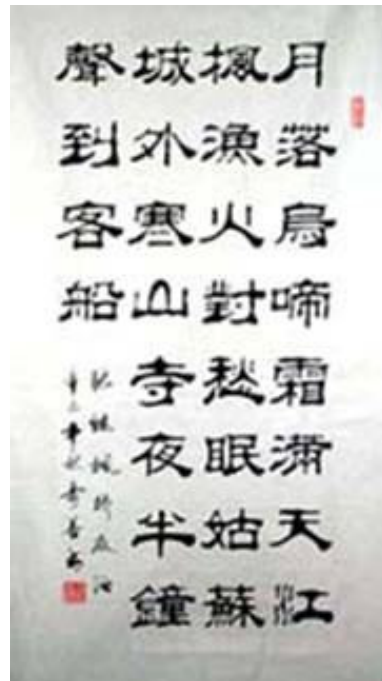 月落烏啼霜滿天江
楓漁火對愁眠姑蘇
城外寒山寺夜半鐘
聲到客船
張繼楓橋夜泊